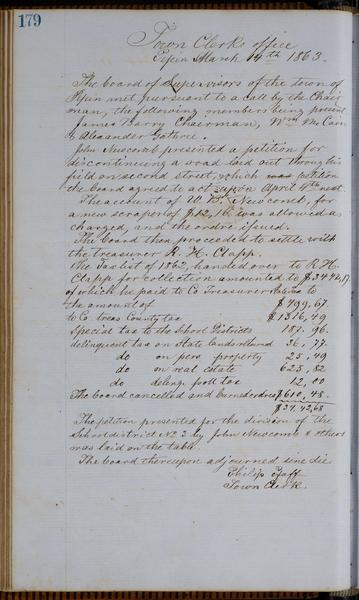 179
Town Clerks office
Pepin March 14th 1863.
The board of Supervisors of the town of
Pepin met pursuant to a call by the Chair
man, the following members being present
James Barry Chairman, Wm McCain
& Alexander Guthrie.
John Newcomb presented a petition for
discontinueing a road laid out through his
field on second street, which was petition
the board agreed to act upon April 4th next.
The account of W. B. Newcomb, for
a new scraper of $12,18 was allowed as
charged, and the ordre issued.
The board then proceeded to settle with
the treasurer R. H. Clapp.
The Tax list of 1862, handed over to R. H.
Clapp for collection amounted to $3442,17
of which he paid to Co Treasurer to
the amount of $499,67.
to Co. treas County tax $1316,49
Special tax to the School Districts 187.96.
delinquent tax on State lands returned 36,77.
do on pers property 25,49
do on real estate 623,82
do delinq. poll tax 12,00
The board cancelled and burned orders $610,48.
$34,42,68
The petition presented for the division of the
School district No 3 by John Newcomb & others
was laid on the table.
The board thereupon adjourned sine die
Philip Pfaff
Town Clerk